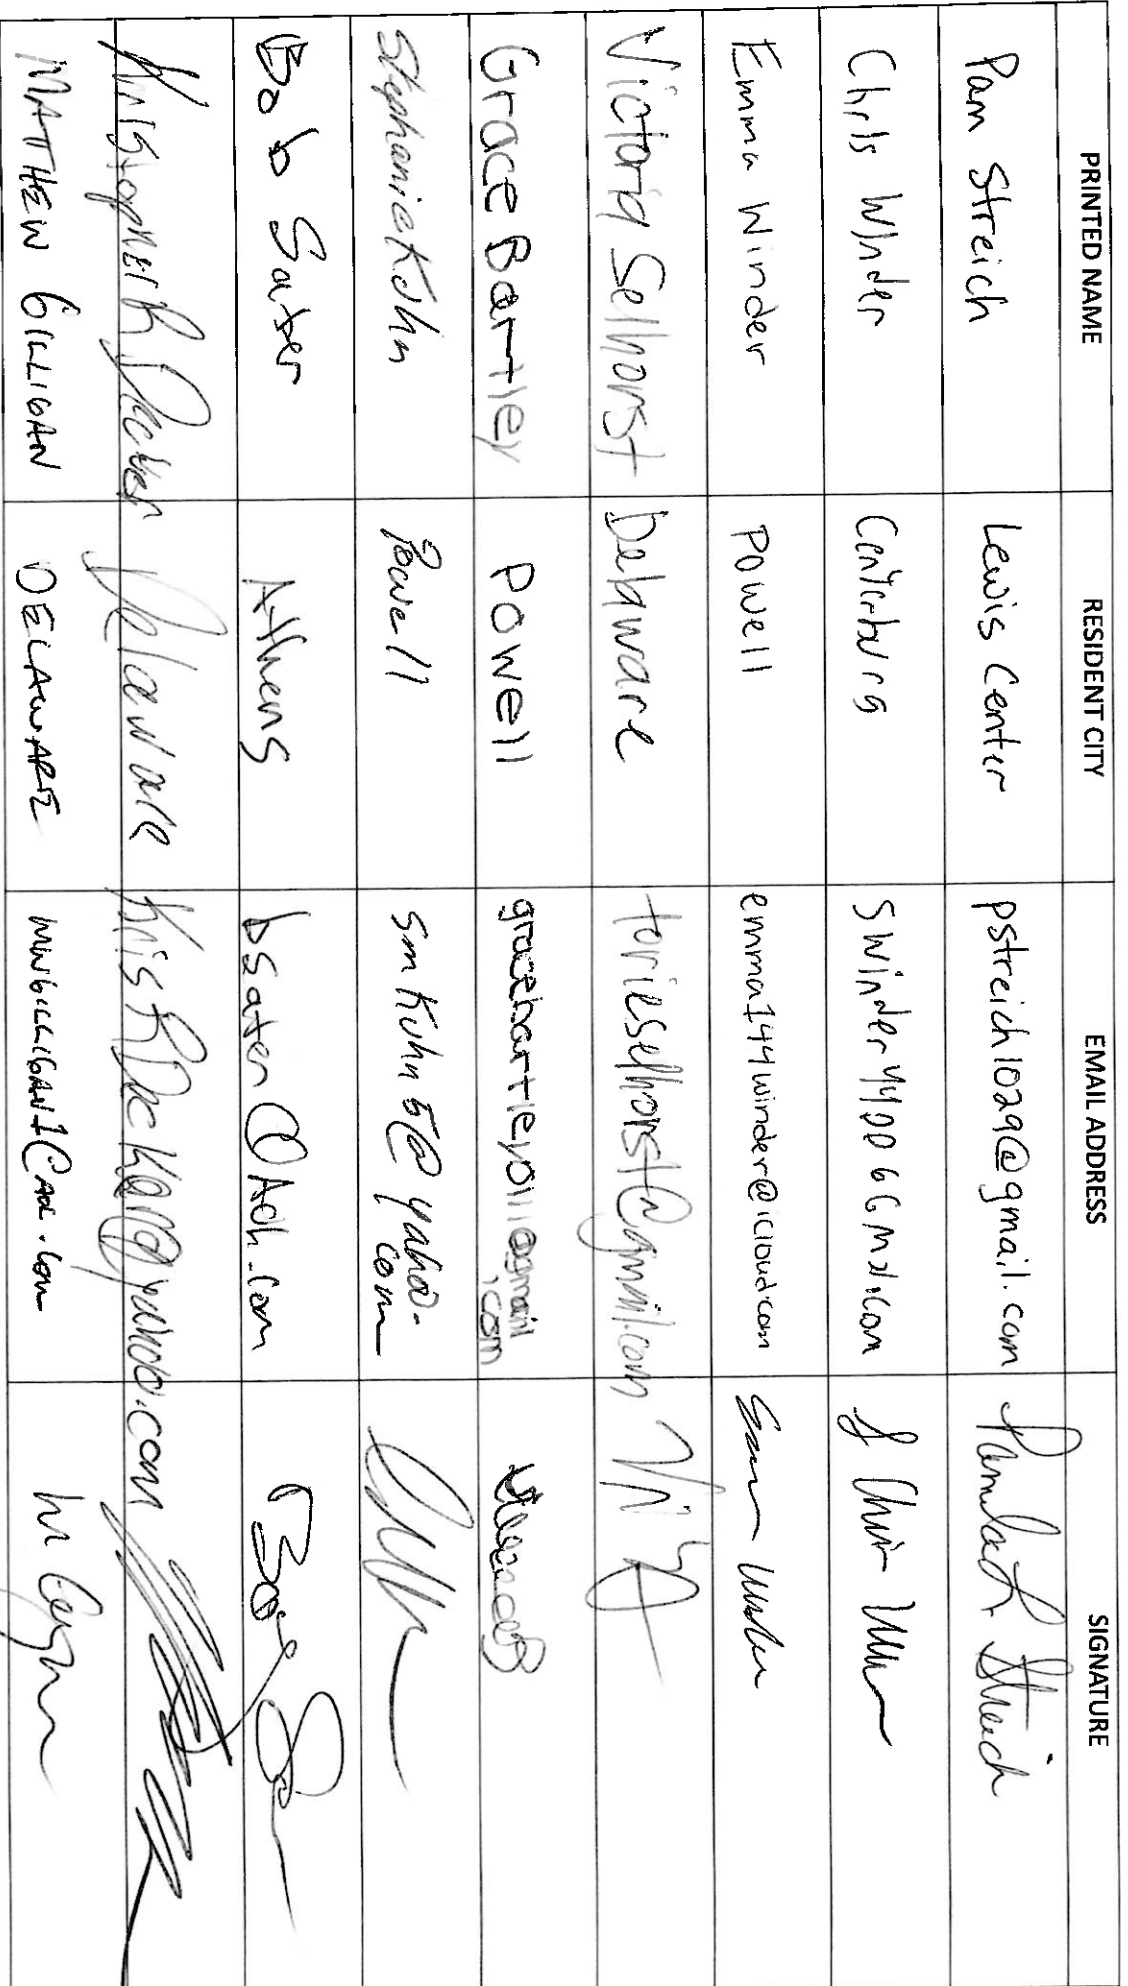 PRINTED NAME RESIDENT CITY EMAIL ADDRESS SIGNATURE
Pam Streich Lewis Center pstreich1029@gmail.com Pamela Streich
Chris Winder Centerburg
Emma Winder Powell emma144winder@icloud.com Emma Winder
Victoria Selhorst Delaware torieselhorst@gmail.com
Grace Bartley Powell
Stephanie Kuhn Powell smkuhn5@yahoo.
com
Bob Sater Athens bsater@Aol.com
Kristopher R Decker Delaware KrisRDecker@yahoo.com
MATTHEW GILLIGAN DELAWARE MWGILLIGAN1@AOL.COM